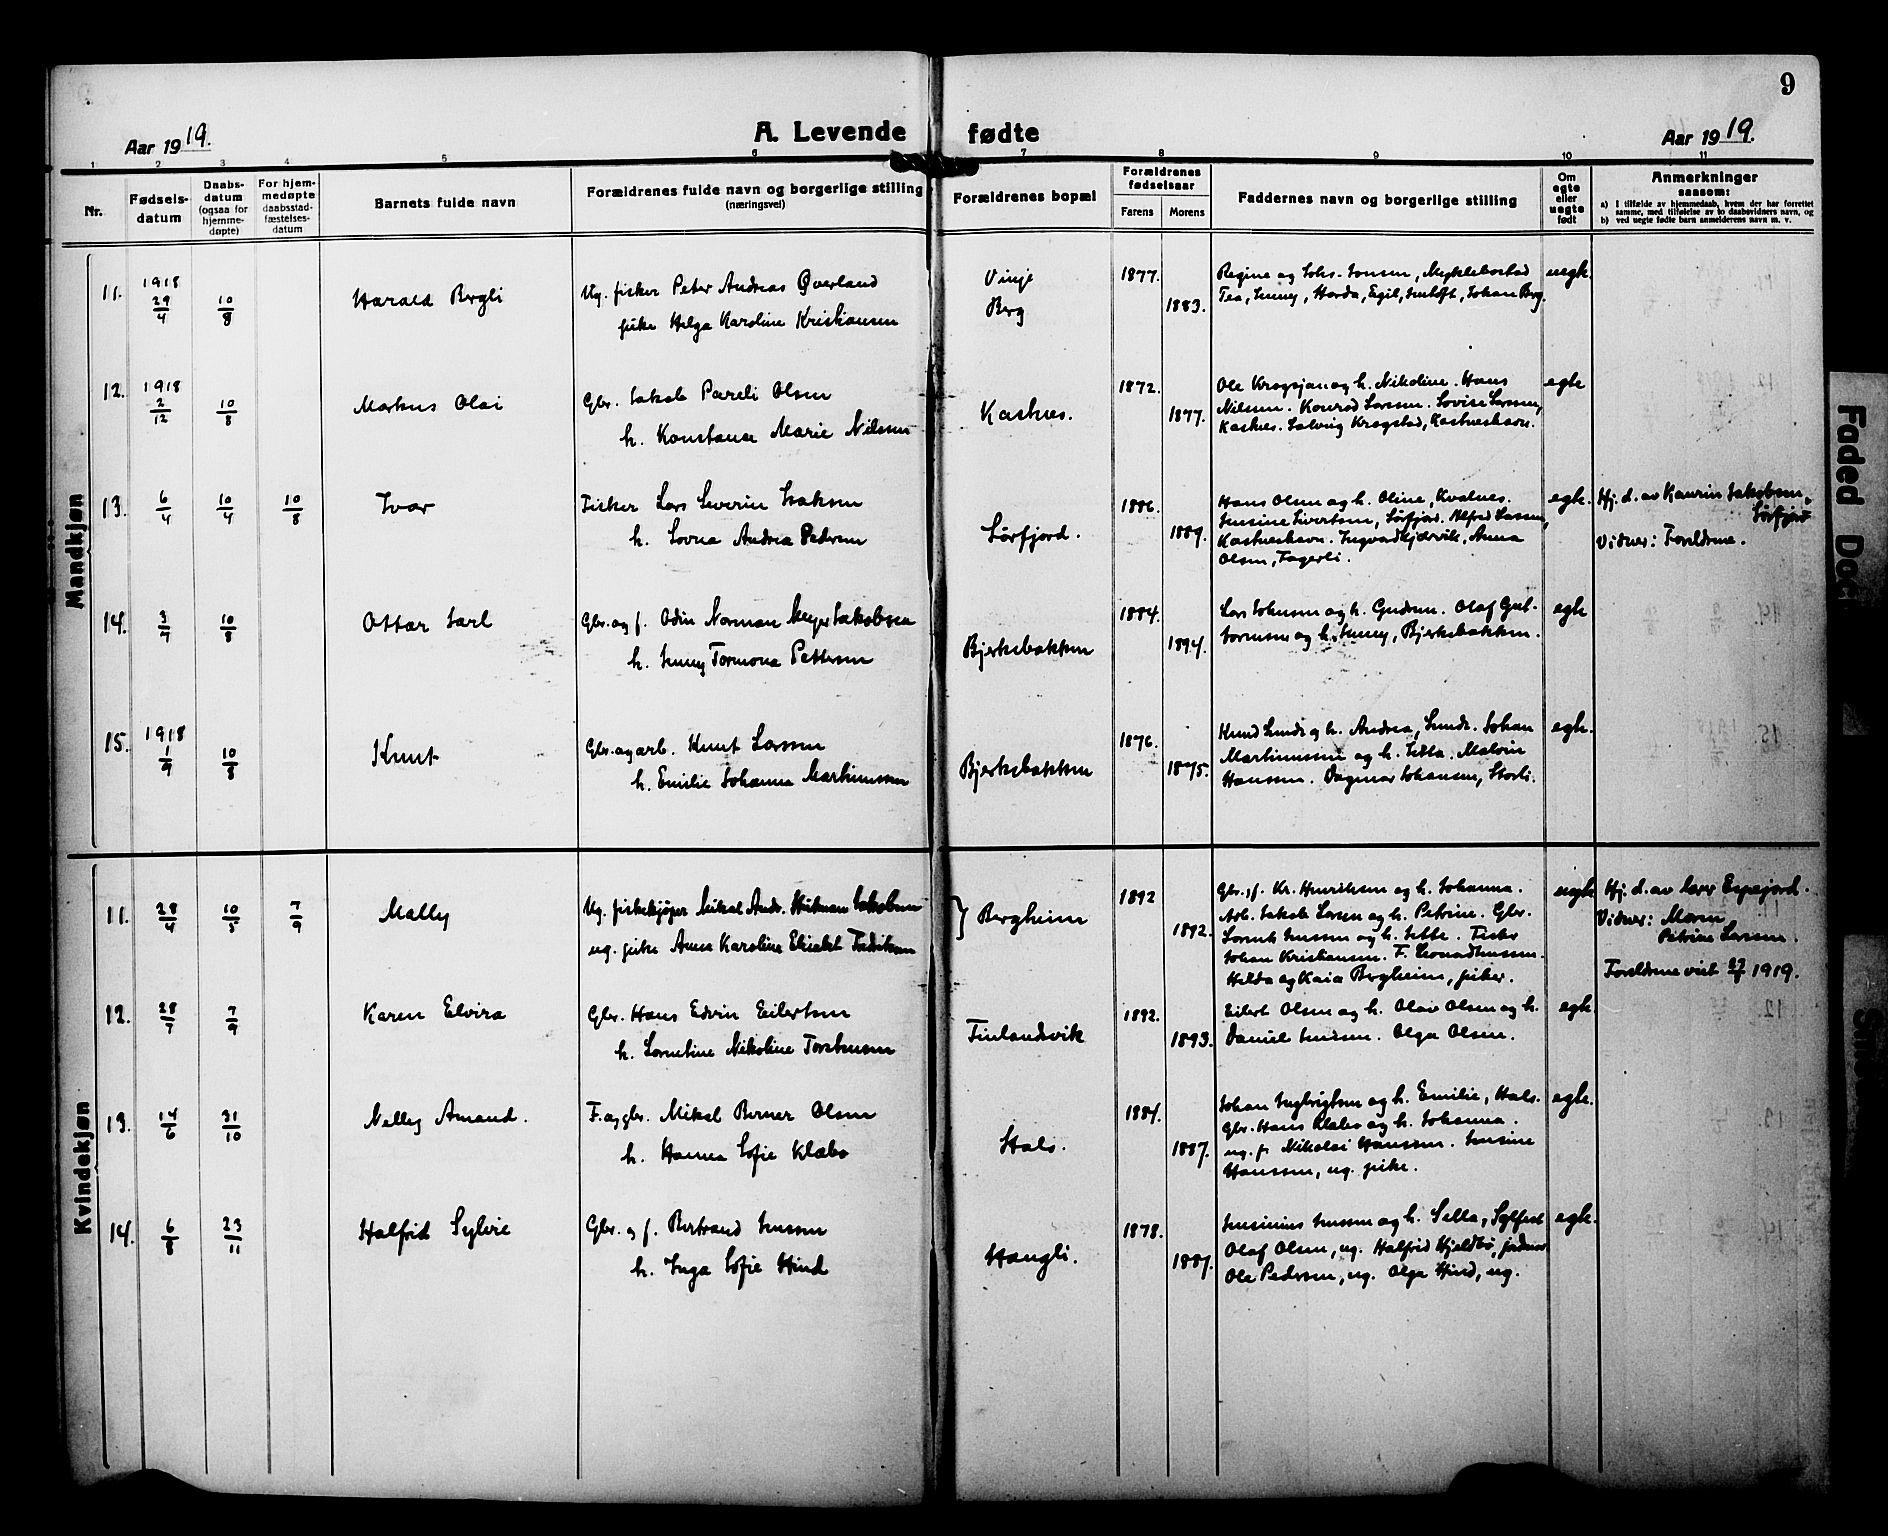 9
Aar 1919.
A. Levende fødte
Aar 1919.
1 2 3 4 5 6 7 8 9 10 11
Nr.
Fødsels-
datum
Daabs-
datum
(ogsaa for
hjemme-
døpte)
For hjem-
medøpte
daabsstad-
fæstelses-
datum
Barnets fulde navn
Forældrenes fulde navn og borgerlige stilling
(næringsvei)
Forældrenes bopæl
Forældrenes
fødselsaar
Farens
Morens
Faddernes navn og borgerlige stilling
Om
egte
eller
uegte
født
Anmerkninger
saasom:
a) I tilfælde av hjemmedaab, hvem der har forrettet
samme, med tilføielse av to daabsvidners navn, og
b) ved uegte fødte barn anmelderens navn m. v.
Mandkjøn
11. 1918 29/4 10/8 Harald Bergli
Ug. fisker Peter Andreas Øverland
pike Helga Karoline Kristiansen
Vinje
Berg
1877.
1883.
Regine og Johs. Jonsen, Myklebostad
Tea, Jenny, Egil, Johan Berg.
uegte
12. 1918 2/12 10/8 Markus Olai
Gbr. Jakob Pareli Olsen
h. Konstanse Marie Nilssen
Kastnes.
1872.
1877.
Ole Krogsjan og h. Nikoline. Hans
Nilssen. Konrad Larssen. Lovise Larssen,
Kastnes. Solveig Krogstad, Kastneshavn.
egte
13. 6/4 10/4 10/8 Ivar
Fisker Lars Severin Isaksen
h. Lovna Andrea Pedersen
Sørfjord.
1886.
1889.
Hans Olsen og h. Oline, Kvalnes.
Jensine Sivertsen, Sørfjord. Alfred Larssen,
Kastneshavn. Anna
Olsen, Fagerli.
egte.
Hj. d. av Kaurin Jakobsen,
Sørfjord
Vidner: Foreldrene.
14. 3/7 10/8 Ottar Jarl
Gbr. og f. Odin Norman Meyer Jakobsen
h. Jenny Tormona Pettersen
Bjerkebakken
1884.
1894.
Lars Johnsen og h. Gudrun. Olaf Gut-
tormsen og h. Jenny, Bjerkebakken.
egte
15. 1918 1/9 10/8 Knut
Gbr. og arb. Knut Larssen
h. Emilie Johanna Martinussen
Bjerkebakken
1876.
1875.
Knud Lunde og h. Andrea, Lunde. Johan
Martinussen og h. Jetta. Malvin
Hanssen. Dagmar Johansen, Storli.
egte.
Kvindekjøn
11. 28/4 10/5 7/9 Mally
Ug. fiskekjøper Mikal Andr. Jakobsen
ug. pike Anna Karoline Elisabet Fredriksen
Bergheim
1892
1892.
Gbr. f. Kr. Henriksen og h. Johanna.
Arb. Jakob Larsen og h. Petrine. Gbr.
Lorents Jenssen og h. Jette. Fisker
Johan Kristiansen. F. Leonard Jenssen.
Hilda og Kaia Bergheim, piker.
uegte
Hj. d. av Espejord.
Vidner: Moren
Petrine Larssen.
Foreldrene viet 27/7 1919.
12. 28/7 7/9 Karen Elvira
Gbr. Hans Edvin Eilertsen
h. Lornetine Nikoline Torstensen
Finlandsvik
1892.
1893.
Eilert Olsen og h. Olav Olsen og h.
Daniel Jenssen. Olga Olsen.
egte.
13. 14/6 31/10 Nelly Amand.
F. og gbr. Mikal Berner Olsen
h. Hanna Sofie Klæbo
Hals.
1884.
1887.
Johan Ingbrigtsen og h. Emilie, Hals.
Gbr. Hans Klæbo og h. Johanna.
ug. f. Nikolai Hanssen. Jensine
Hanssen, ug. pike.
egte.
14. 6/8 23/11 Halfrid Sylvie
Gbr. og f. Bertrand Jenssen
h. Inga Sofie Hind
Haugli.
1878.
1887.
Jensinius Jenssen og h. Sella,
Olaf Olsen, ug. Halfrid Hjeldbø, jordmor
Ole Pedersen, ug. Olga Hind, ug.
egte.
Faded Doc